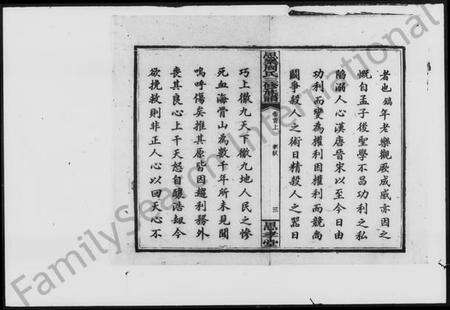 者也鎬年老樂觀厥成戚亦因之
慨自孟子後聖學不昌功利之私
陷溺人心漢唐晉宋以至今日由
功利而變為權利因權利而競尚
鬪爭殺人之術日精殺人之器日
周氏三修族譜
卷首上
三
思孝堂
巧上徹九天下徹九地人民之慘
死血海骨山為數千年所未見聞
嗚呼傷矣推其原皆因趨利務外
喪其良心上干天怒自釀浩劫今
欲挽救則非正人心以回天心不
FamilySearch International